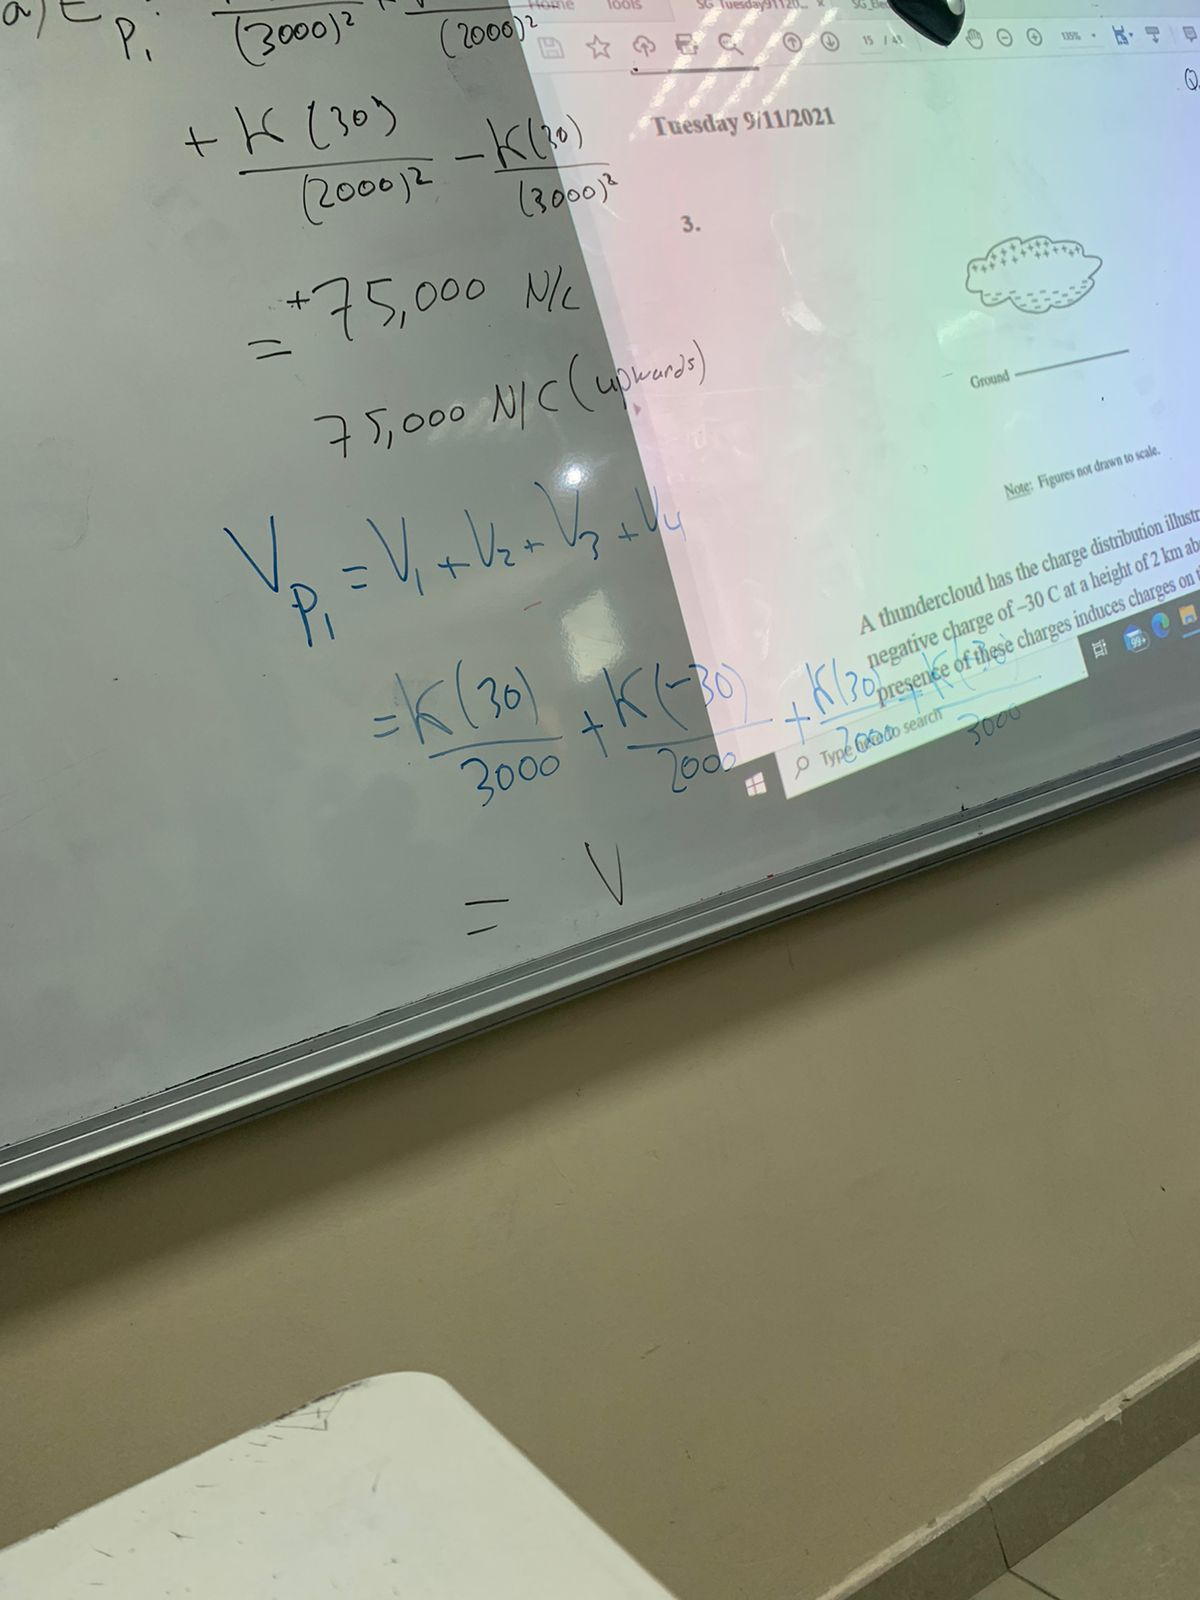 a) E P₁
(3000)² (2000)²
+ K(30) / (2000)² - K(30) / (3000)²
= +75,000 N/C
75,000 N/C (upwards)
V P₁ = V₁ + V₂ + V₃ + V₄
= K(30) / 3000 + K(-30) / 2000 + K(30) / 2000 + K(-30) / 3000
= V
Home Tools SG_Tuesday91120... ×
15 / 43 135%
Tuesday 9/11/2021
3.
Ground
Note: Figures not drawn to scale.
A thundercloud has the charge distribution
negative charge of –30 C at a height of 2 km
presence of these charges induces charges on
Type here to search
99+